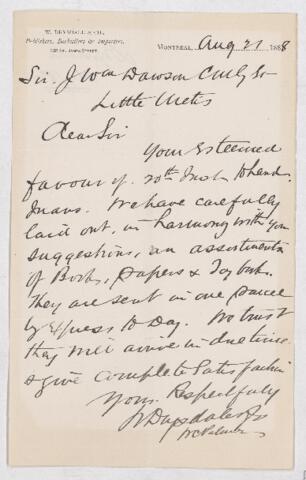 W. DRYSDALE & CO.
Publishers, Booksellers & Importers,
232 St. James Street
MONTREAL, Aug 21 1888
Sir. J Wm Dawson C.M.G &c
Little Metis
Dear Sir
Your Esteemed
favour of 20th Inst to hand.
We have carefully
laid out, in harmony with your
suggestions, an assortment
of Books, Papers &
They are sent in one parcel
by Express to Day. We trust
they will arrive in due time
& give Complete Satisfaction
Yours Respectfully
W Drysdale & Co